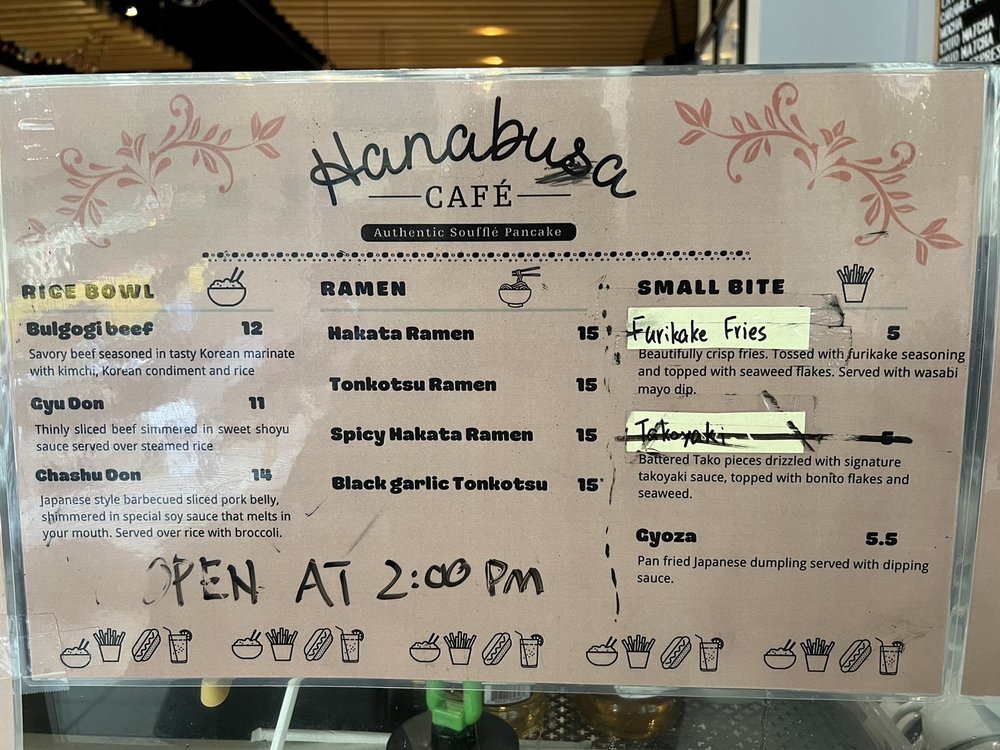 Hanabusa
CAFÉ
Authentic Soufflé Pancake
RICE BOWL
Bulgogi beef 12
Savory beef seasoned in tasty Korean marinate
with kimchi, Korean condiment and rice
Gyu Don 11
Thinly sliced beef simmered in sweet shoyu
sauce served over steamed rice
Chashu Don 14
Japanese style barbecued sliced pork belly,
shimmered in special soy sauce that melts in
your mouth. Served over rice with broccoli.
RAMEN
Hakata Ramen 15
Tonkotsu Ramen 15
Spicy Hakata Ramen 15
Black garlic Tonkotsu 15
SMALL BITE
Furikake Fries 5
Beautifully crisp fries. Tossed with furikake seasoning
and topped with seaweed flakes. Served with wasabi
mayo dip.
Takoyaki 5
Battered Tako pieces drizzled with signature
takoyaki sauce, topped with bonito flakes and
seaweed.
Gyoza 5.5
Pan fried Japanese dumpling served with dipping
sauce.
OPEN AT 2:00 PM
MOCHA
MATCHA
MATCHA